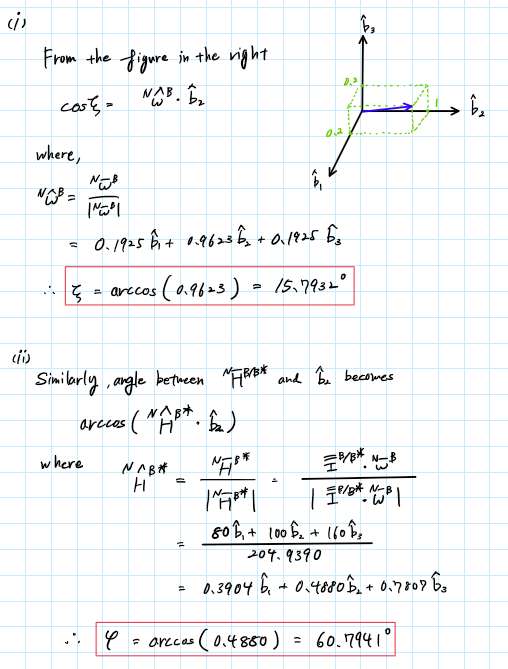 (i)
From the figure in the right
cosξ = ᴺω̂ᴮ · b̂₂
b̂₃
0.2
1
b̂₂
0.2
b̂₁
where,
ᴺω̂ᴮ = ᴺω̄ᴮ / |ᴺω̄ᴮ|
= 0.1925 b̂₁ + 0.9623 b̂₂ + 0.1925 b̂₃
∴ ξ = arccos(0.9623) = 15.7932°
(ii)
Similarly, angle between ᴺH̄ᴮ/ᴮ* and b̂₂ becomes
arccos(ᴺĤᴮ* · b̂₂)
where ᴺĤᴮ* = ᴺH̄ᴮ* / |ᴺH̄ᴮ*| = I̿ᴮ/ᴮ* · ᴺω̄ᴮ / |I̿ᴮ/ᴮ* · ᴺω̄ᴮ|
= 80 b̂₁ + 100 b̂₂ + 160 b̂₃ / 204.9390
= 0.3904 b̂₁ + 0.4880 b̂₂ + 0.7807 b̂₃
∴ φ = arccos(0.4880) = 60.7941°